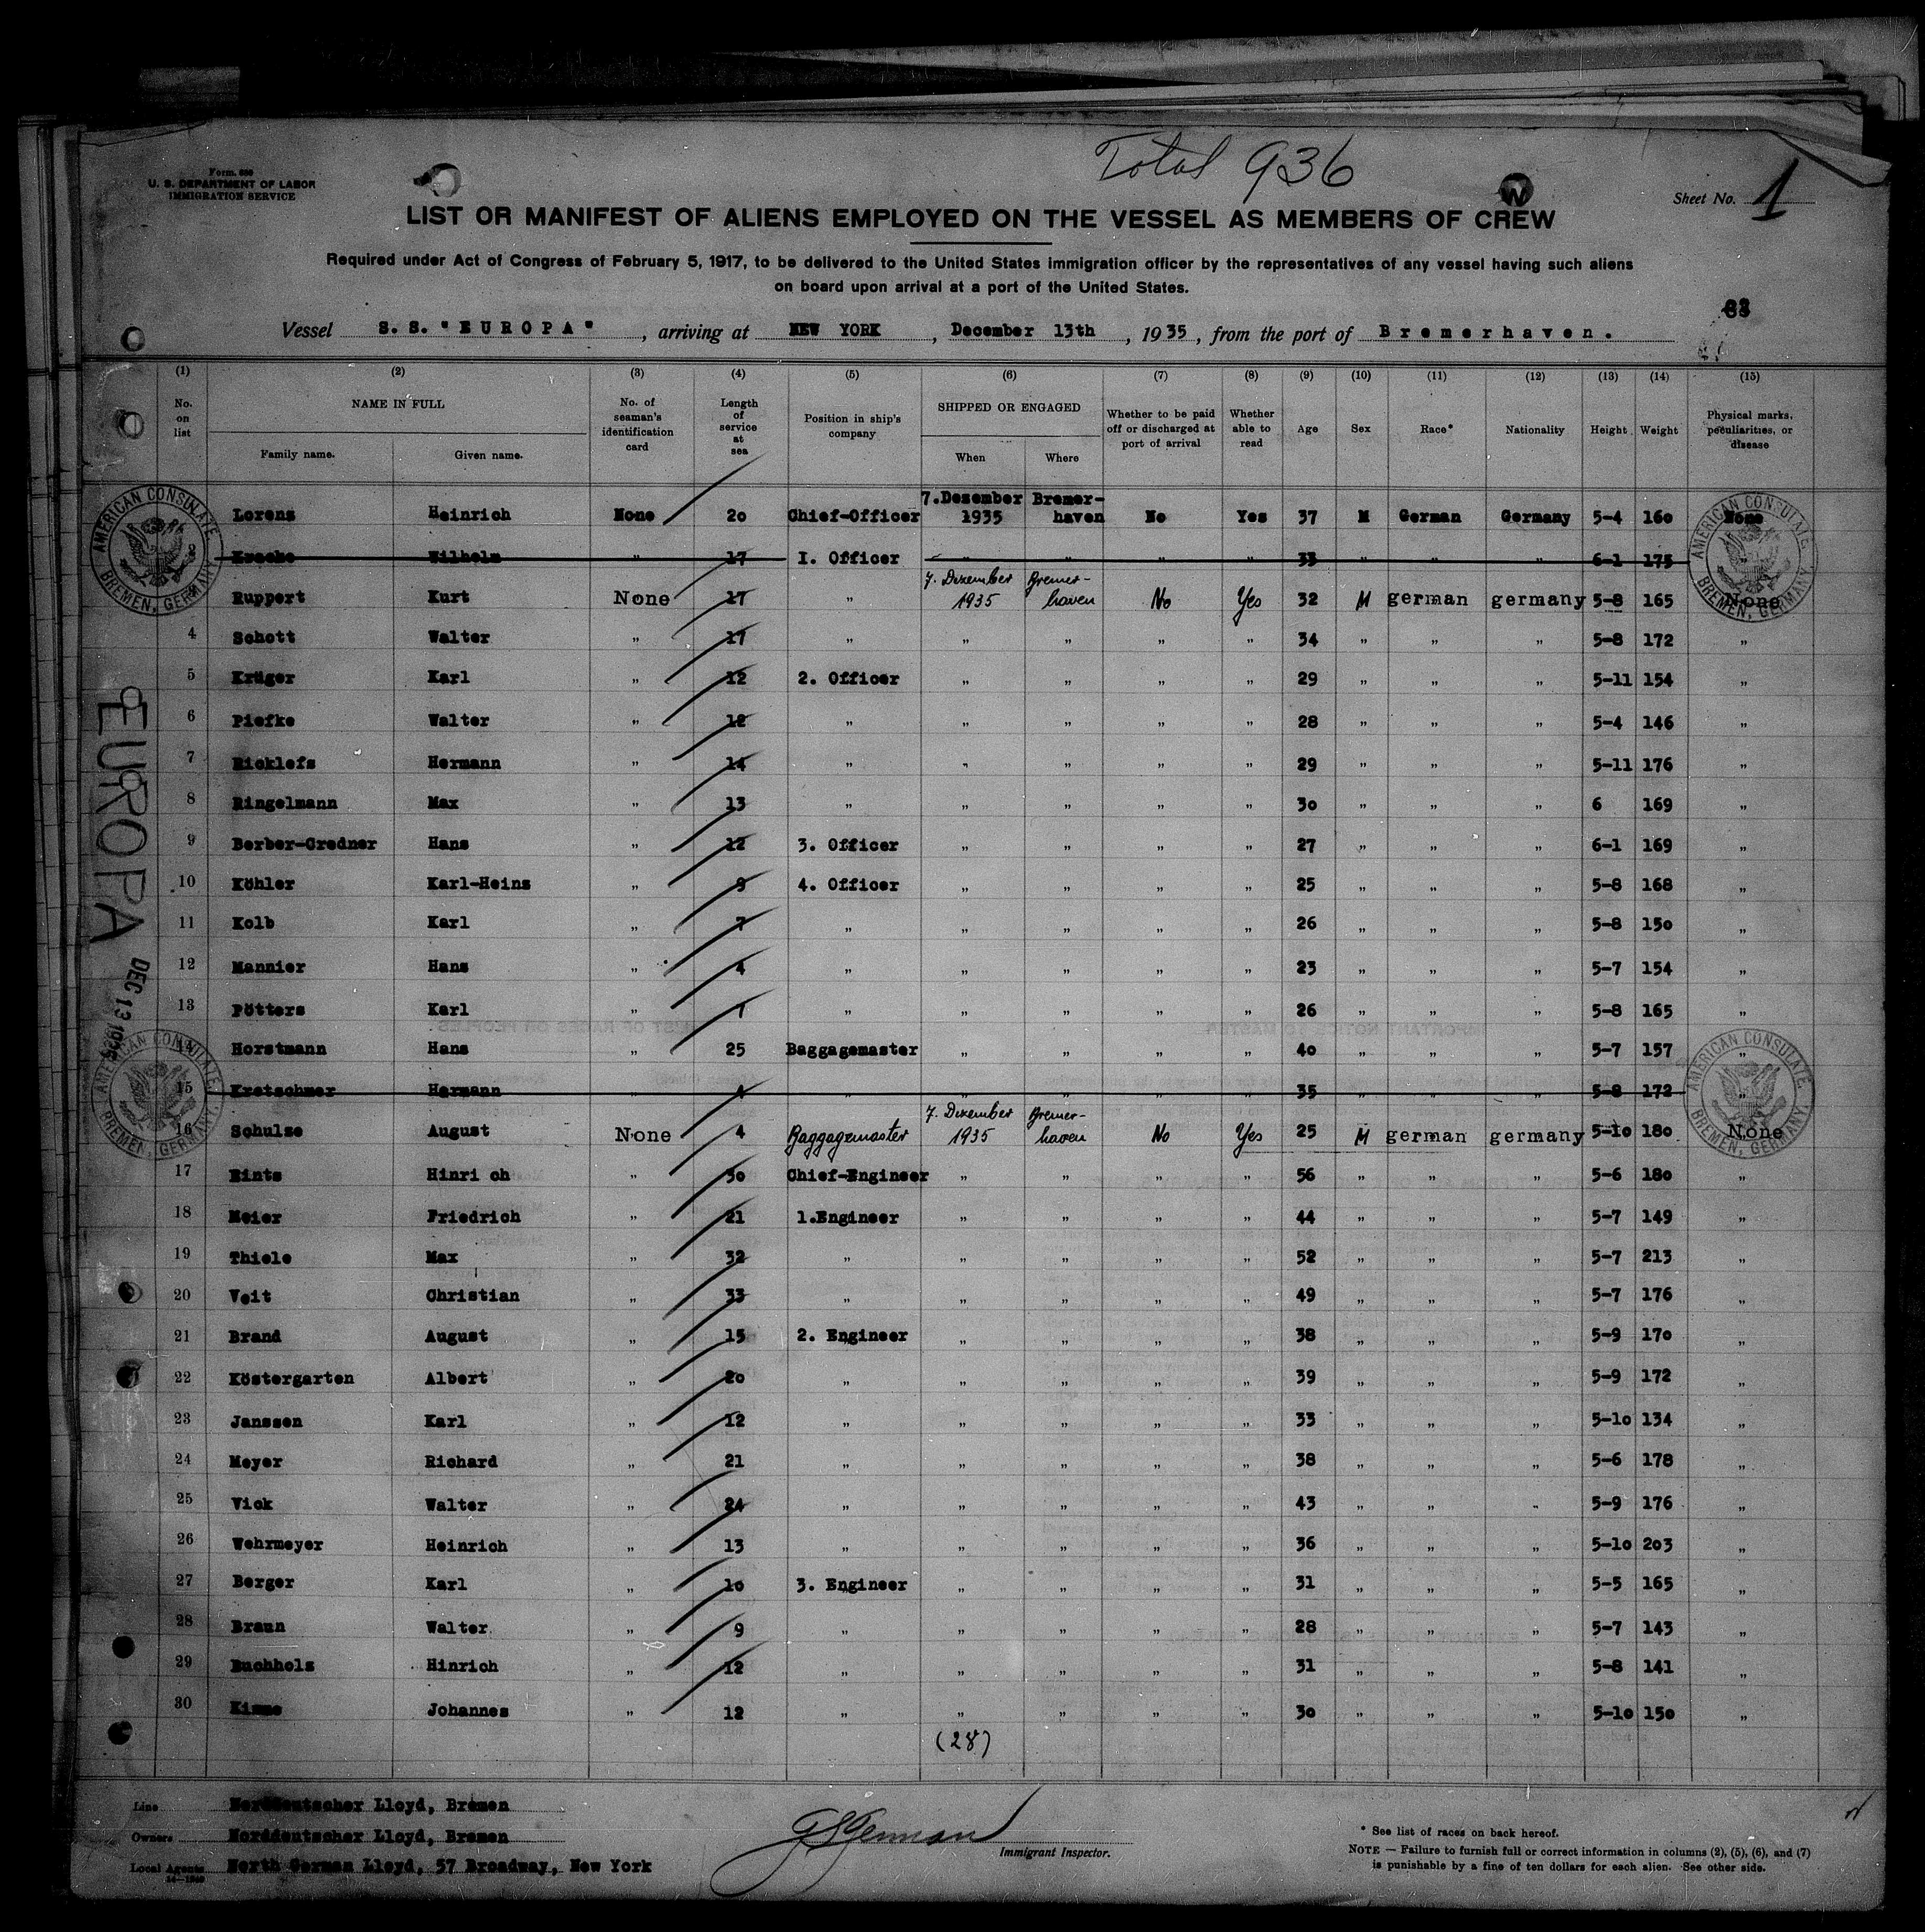 Total 936
Form 689
U. S. DEPARTMENT OF LABOR
IMMIGRATION SERVICE
W
Sheet No. 1
LIST OR MANIFEST OF ALIENS EMPLOYED ON THE VESSEL AS MEMBERS OF CREW
Required under Act of Congress of February 5, 1917, to be delivered to the United States immigration officer by the representatives of any vessel having such aliens
on board upon arrival at a port of the United States.
Vessel S. S. "EUROPA", arriving at NEW YORK, December 13th, 1935, from the port of Bremerhaven.
(1) (2) (3) (4) (5) (6) (7) (8) (9) (10) (11) (12) (13) (14) (15)
No. on list NAME IN FULL Family name. Given name. No. of seaman's identification card Length of service at sea Position in ship's company SHIPPED OR ENGAGED When Where Whether to be paid off or discharged at port of arrival Whether able to read Age Sex Race* Nationality Height Weight Physical marks, peculiarities, or disease
Lorenz Heinrich None 20 Chief-Officer 7.Dezember 1935 Bremer-haven No Yes 37 M German Germany 5-4 160 None
Kracke Wilhelm " 17 I. Officer " " " " 33 " " " 6-1 175
Ruppert Kurt None 17 " 7. Dezember 1935 Bremer-haven No Yes 32 M german germany 5-8 165 None
4 Schott Walter " 17 " " " " " 34 " " " 5-8 172 "
5 Krüger Karl " 12 2. Officer " " " " 29 " " " 5-11 154 "
6 Piefke Walter " 12 " " " " " 28 " " " 5-4 146 "
7 Ricklefs Hermann " 14 " " " " " 29 " " " 5-11 176 "
8 Ringelmann Max " 13 " " " " " 30 " " " 6 169 "
9 Berber-Credner Hans " 12 3. Officer " " " " 27 " " " 6-1 169 "
10 Köhler Karl-Heinz " 9 4. Officer " " " " 25 " " " 5-8 168 "
11 Kolb Karl " 7 " " " " " 26 " " " 5-8 150 "
12 Mannier Hans " 4 " " " " " 23 " " " 5-7 154 "
13 Pötters Karl " 7 " " " " " 26 " " " 5-8 165 "
14 Horstmann Hans " 25 Baggagemaster " " " " 40 " " " 5-7 157 "
15 Kretschmer Hermann " 4 " " " " " 35 " " " 5-8 172 "
16 Schulze August None 4 Baggagemaster 7. Dezember 1935 Bremer-haven No Yes 25 M german germany 5-10 180 None
17 Hints Hinrich " 30 Chief-Engineer " " " " 56 " " " 5-6 180 "
18 Meier Friedrich " 21 1.Engineer " " " " 44 " " " 5-7 149 "
19 Thiele Max " 32 " " " " " 52 " " " 5-7 213 "
20 Veit Christian " 33 " " " " " 49 " " " 5-7 176 "
21 Brand August " 15 2. Engineer " " " " 38 " " " 5-9 170 "
22 Köstergarten Albert " 20 " " " " " 39 " " " 5-9 172 "
23 Janssen Karl " 12 " " " " " 33 " " " 5-10 134 "
24 Meyer Richard " 21 " " " " " 38 " " " 5-6 178 "
25 Vick Walter " 24 " " " " " 43 " " " 5-9 176 "
26 Wehrmeyer Heinrich " 13 " " " " " 36 " " " 5-10 203 "
27 Berger Karl " 10 3. Engineer " " " " 31 " " " 5-5 165 "
28 Braun Walter " 9 " " " " " 28 " " " 5-7 143 "
29 Buchholz Hinrich " 12 " " " " " 31 " " " 5-8 141 "
30 Kimme Johannes " 12 " " " " " 30 " " " 5-10 150 "
(28)
AMERICAN CONSULATE BREMEN, GERMANY
AMERICAN CONSULATE BREMEN, GERMANY
AMERICAN CONSULATE BREMEN, GERMANY
AMERICAN CONSULATE BREMEN, GERMANY
EUROPA
DEC 13 1935
Line Norddeutscher Lloyd, Bremen
Owners Norddeutscher Lloyd, Bremen
Local Agents North German Lloyd, 57 Broadway, New York
Immigrant Inspector.
* See list of races on back hereof.
NOTE — Failure to furnish full or correct information in columns (2), (5), (6), and (7)
is punishable by a fine of ten dollars for each alien. See other side.